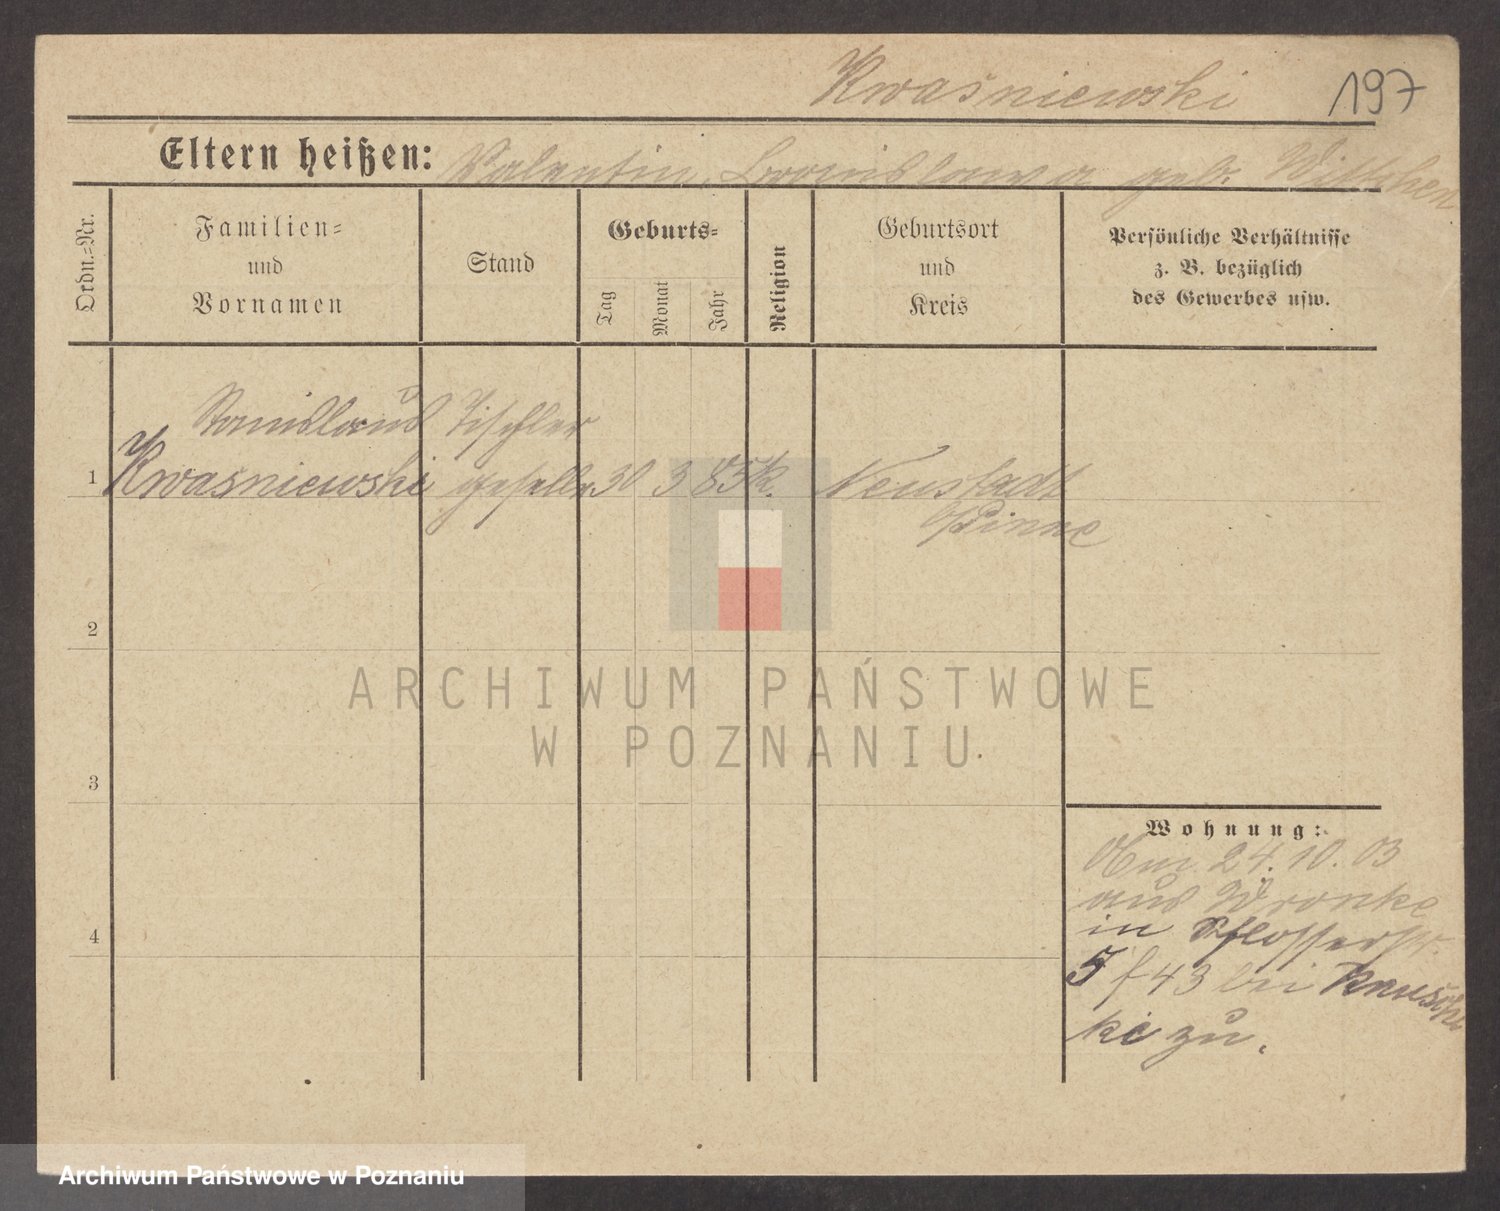 Kwaśniewski
197
Eltern heißen: Valentin, Bronislawa geb. Wittchen
Ordn.-Nr.
Familien-
und
Vornamen
Stand
Geburts-
Tag
Monat
Jahr
Religion
Geburtsort
und
Kreis
Persönliche Verhältnisse
z. B. bezüglich
des Gewerbes usw.
Stanislaus Tischler
1 Kwaśniewski geselle 30 3 85 k. Neustadt
Pinne
2
ARCHIWUM PAŃSTWOWE
W POZNANIU
3
Wohnung:
Am 24.10.03
aus Wronke
in Schlosserstr.
5 f 43 bei
ki zu.
4
Archiwum Państwowe w Poznaniu